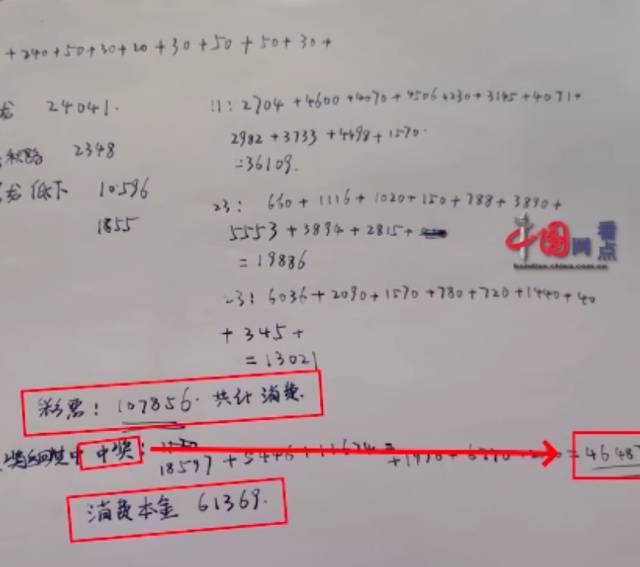 +240+50+30+20+30+50+50+30+
龙 24041.
11: 2704+4600+4070+4506+230+3145+4071+
2982+3733+4498+1570.
=36109.
2348
龙 低下 10596
1855
23: 660+1116+1020+150+788+3890+
5553+3894+2815+
=19886
中国网
看点
kandian.china.com.cn
23: 6036+2090+1570+780+720+1440+40
+345+
=13021
彩票: 107856. 共计消费.
中奖:
18597+5446+
=46487
消费本金 61369.